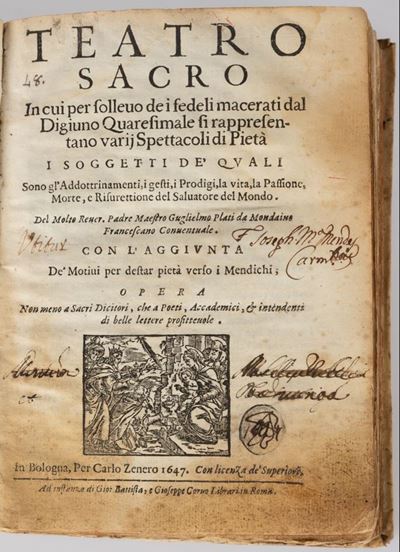 TEATRO
48.
SACRO
In cui per solleuo de i fedeli macerati dal
Digiuno Quaresimale si rappresen-
tano varij Spettacoli di Pietà
I SOGGETTI DE' QVALI
Sono gl'Addottrinamenti, i gesti, i Prodigi, la vita, la Passione,
Morte, e Risurettione del Saluatore del Mondo.
Del Molto Reuer. Padre Maestro Guglielmo Plati da Mondaino
Francescano Conuentuale.
F. Joseph
CON L'AGGIVNTA
De' Motiui per destar pietà verso i Mendichi;
OPERA
Non meno a Sacri Dicitori, che a Poeti, Accademici, & intendenti
di belle lettere profitteuole.
In Bologna, Per Carlo Zenero 1647. Con licenza de' Superiori,
Ad instanza di Gio: Battista, e Gioseppe Coruo Librari in Roma.